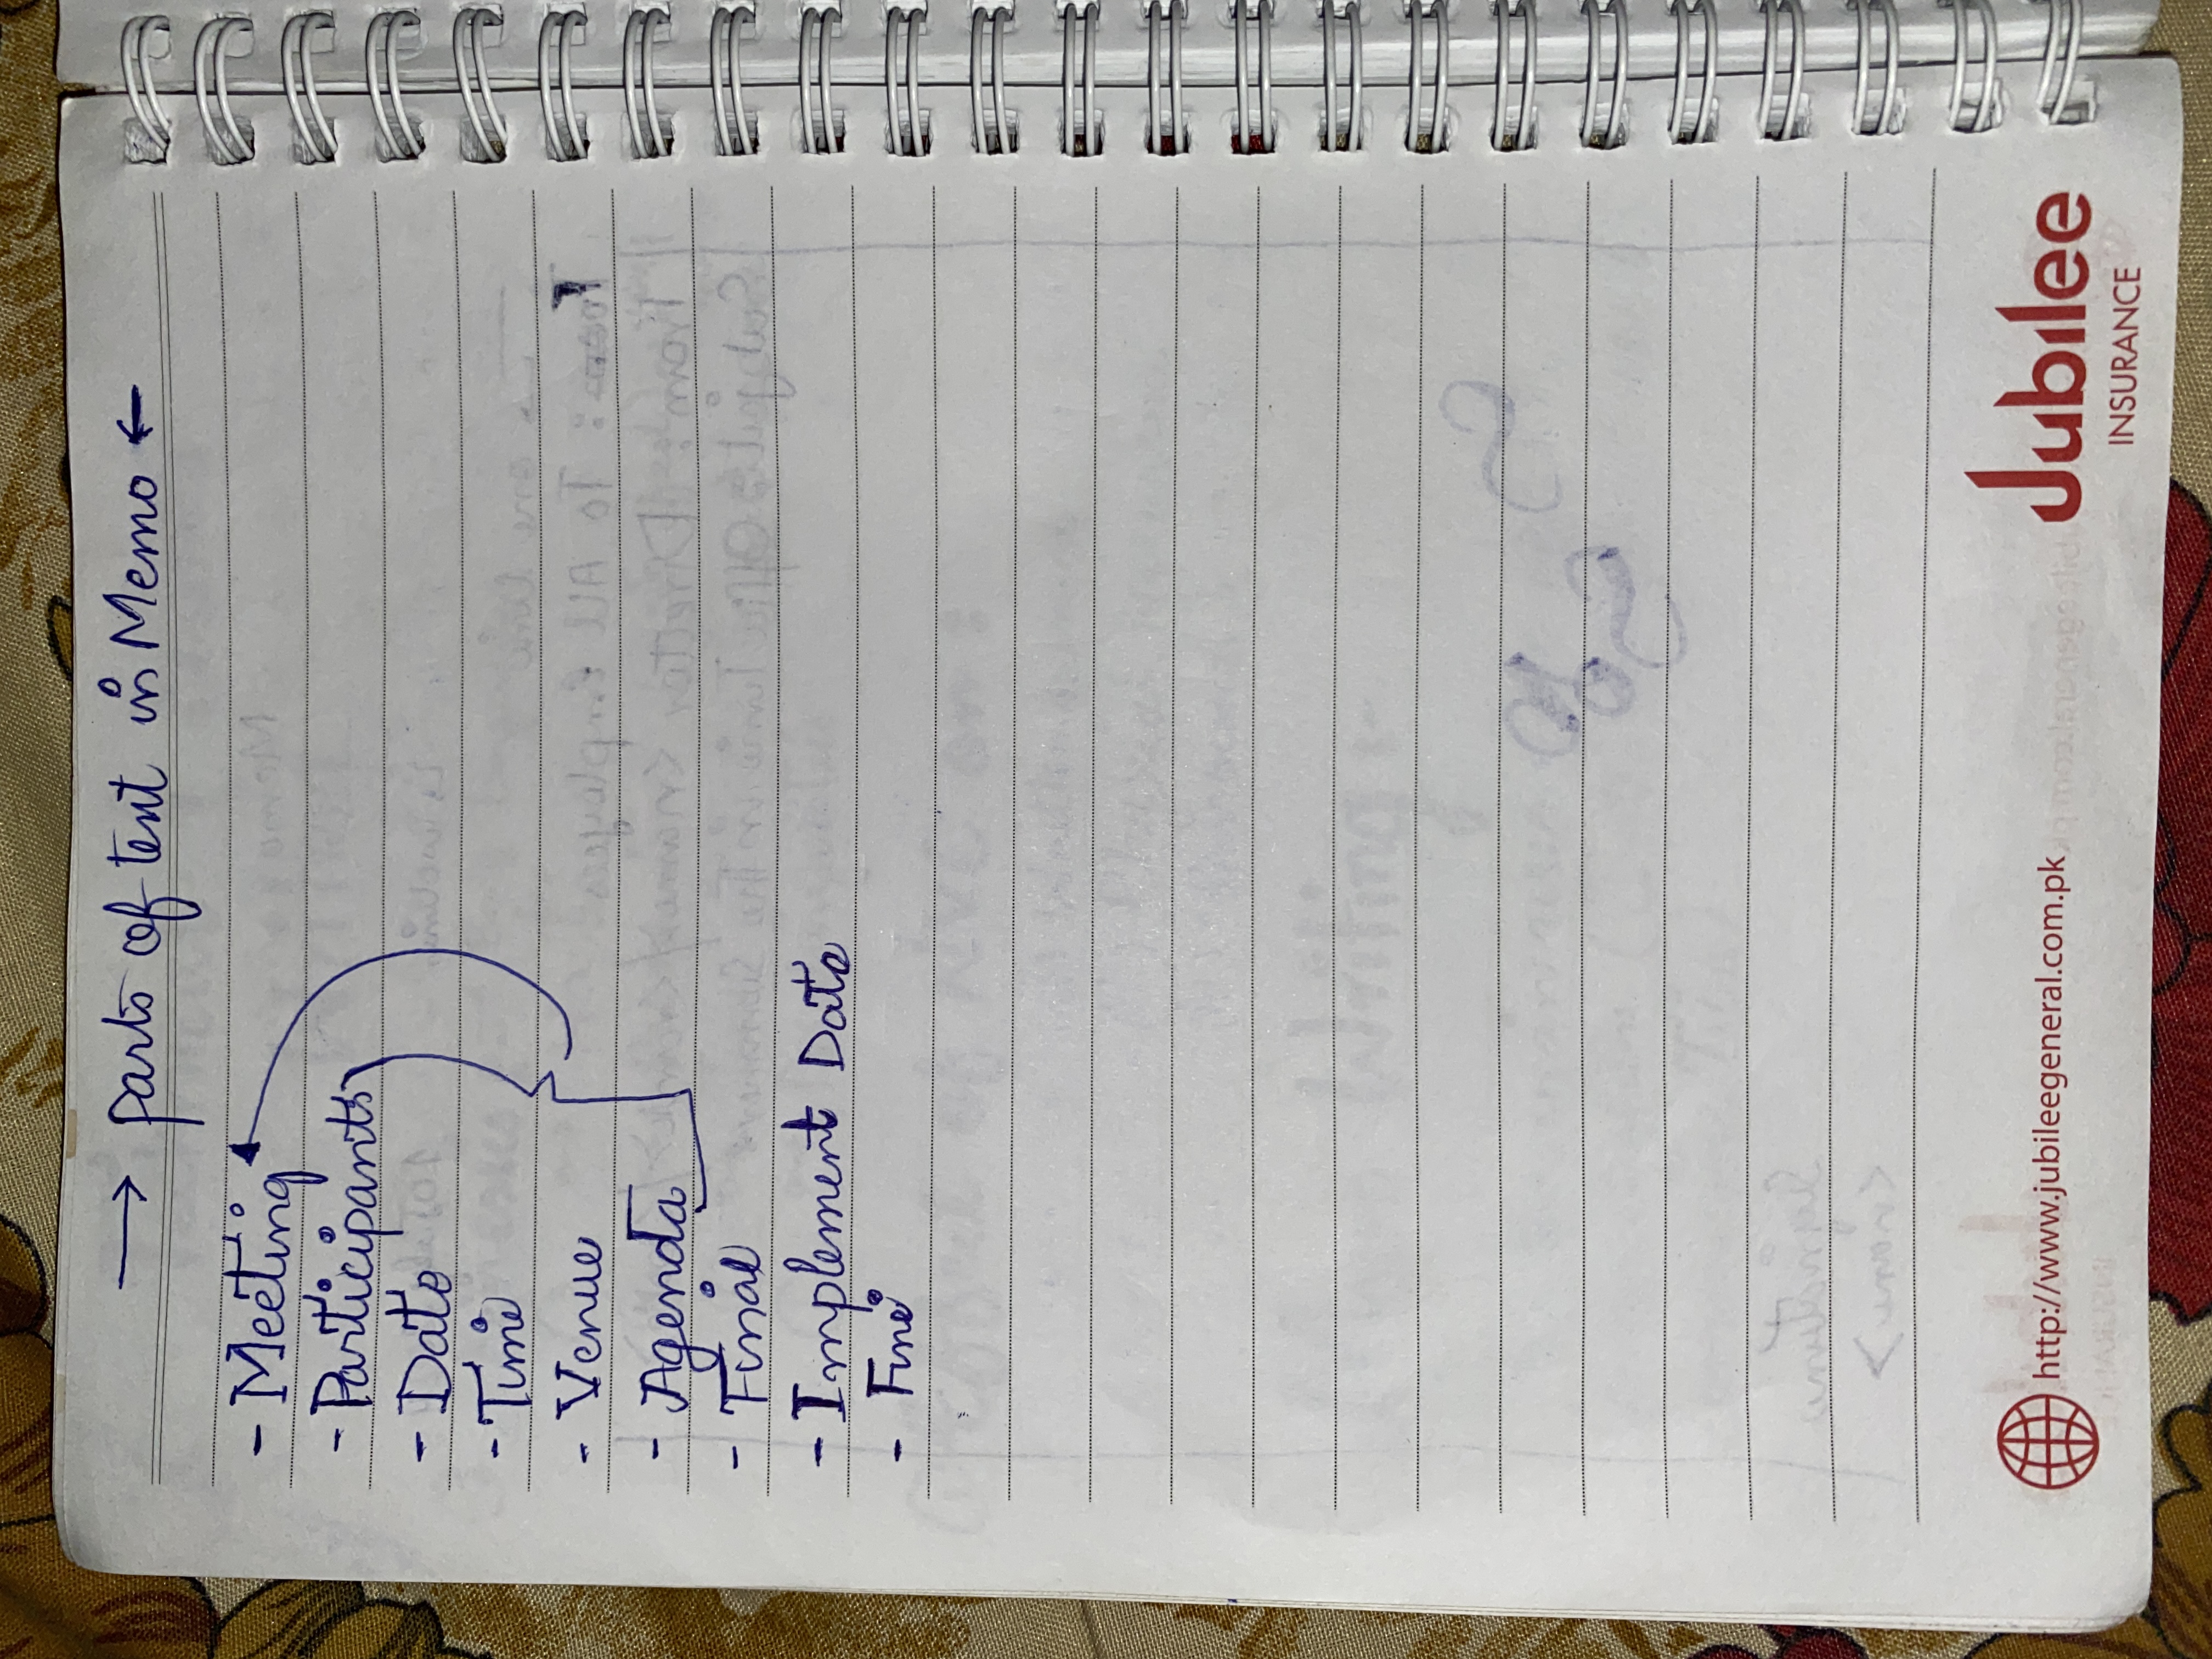 → parts of text in Memo ←
- Meeting
- Participants
- Date
- Time
- Venue
- Agenda
- Final
- Implement Date
- Fine
http://www.jubileegeneral.com.pk
Jubilee
INSURANCE